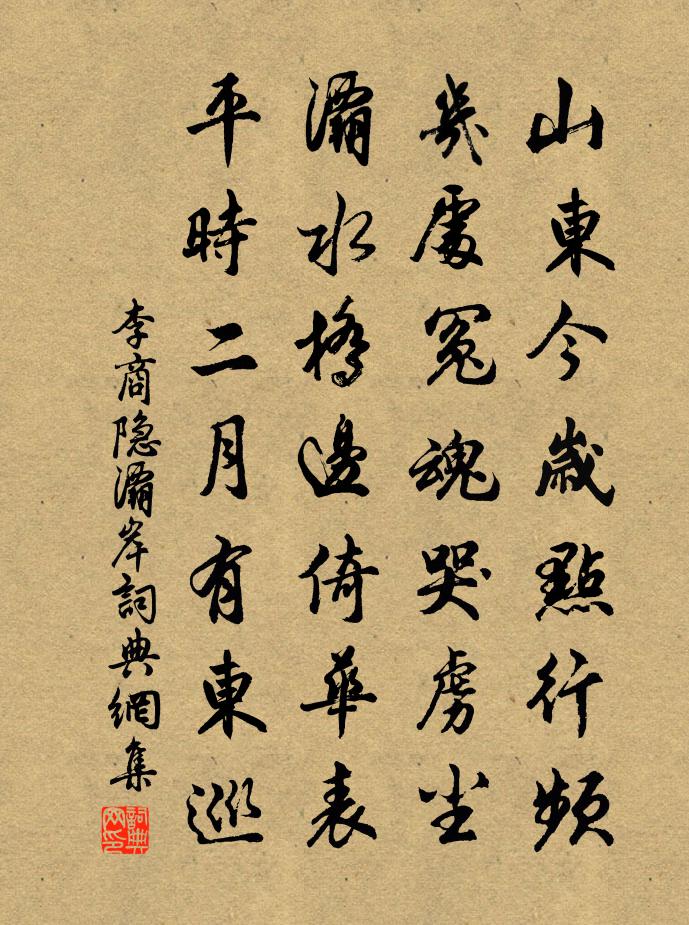 山東今歲點行頻
幾處冤魂哭虜塵
灞水橋邊倚華表
平時二月有東巡
李商隐灞岸詞典網集
詞典網印